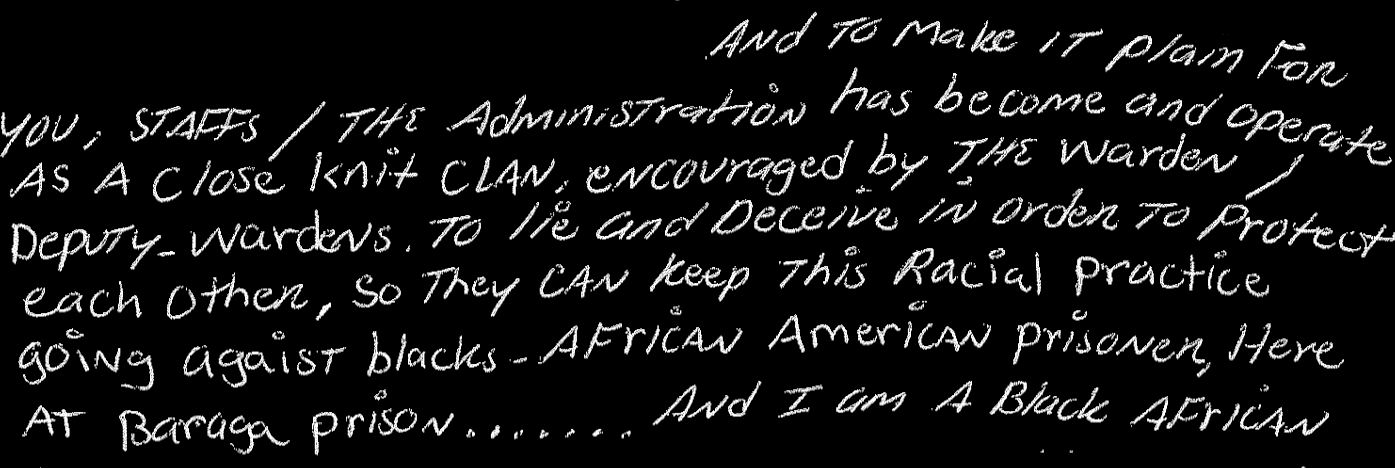 And To Make iT plain For
you, STAFFs / THE Administration has become and operate
As A Close knit CLAN, encouraged by THE Warden /
Deputy-wardens. To lie and Deceive in order To Protect
each other, So They CAN keep This Racial practice
going agaist blacks-African American prisoner, Here
AT Baraga prison....... And I am A Black African